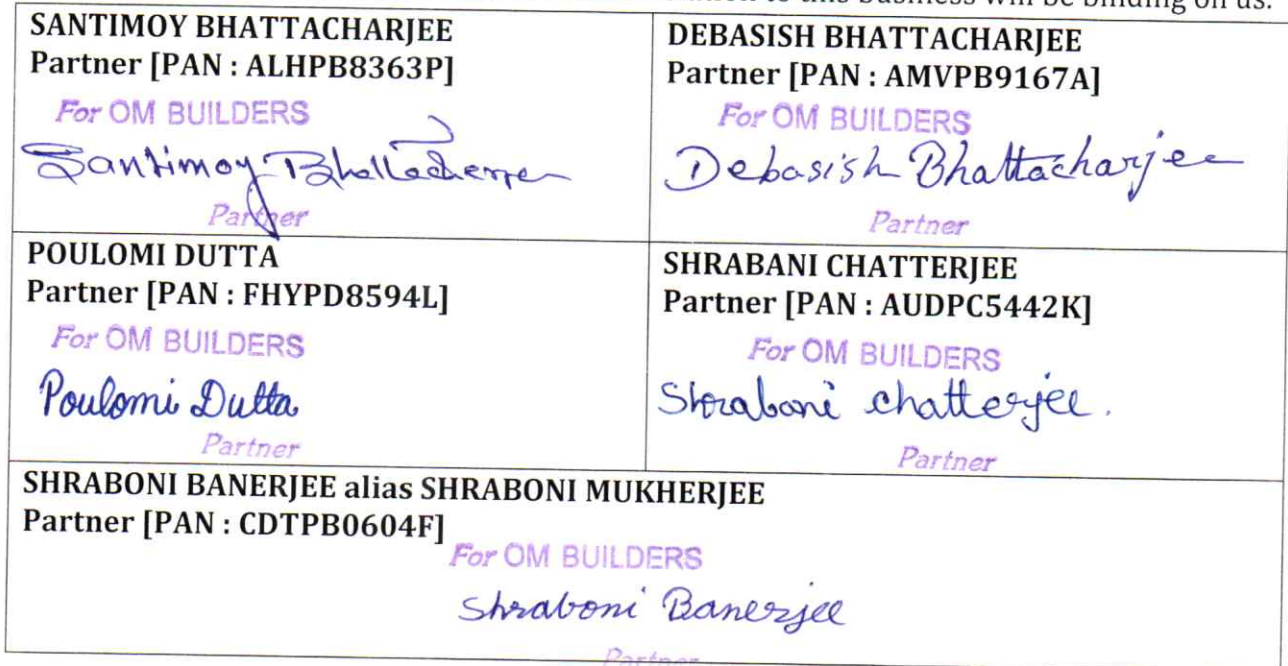 to this business will be binding on us.
SANTIMOY BHATTACHARJEE
Partner [PAN : ALHPB8363P]
For OM BUILDERS
Santimoy Bhattacherjee
Partner
DEBASISH BHATTACHARJEE
Partner [PAN : AMVPB9167A]
For OM BUILDERS
Debasish Bhattacharjee
Partner
POULOMI DUTTA
Partner [PAN : FHYPD8594L]
For OM BUILDERS
Poulomi Dutta
Partner
SHRABANI CHATTERJEE
Partner [PAN : AUDPC5442K]
For OM BUILDERS
Shraboni chatterjee.
Partner
SHRABONI BANERJEE alias SHRABONI MUKHERJEE
Partner [PAN : CDTPB0604F]
For OM BUILDERS
Shraboni Banerjee
Partner